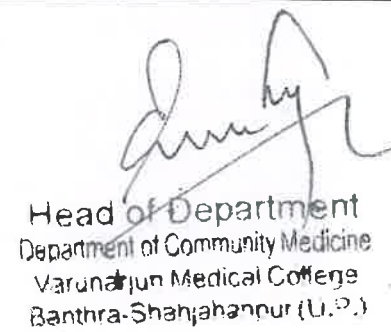 Head of Department
Department of Community Medicine
Varunarjun Medical College
Banthra-Shahjahanpur (U.P.)